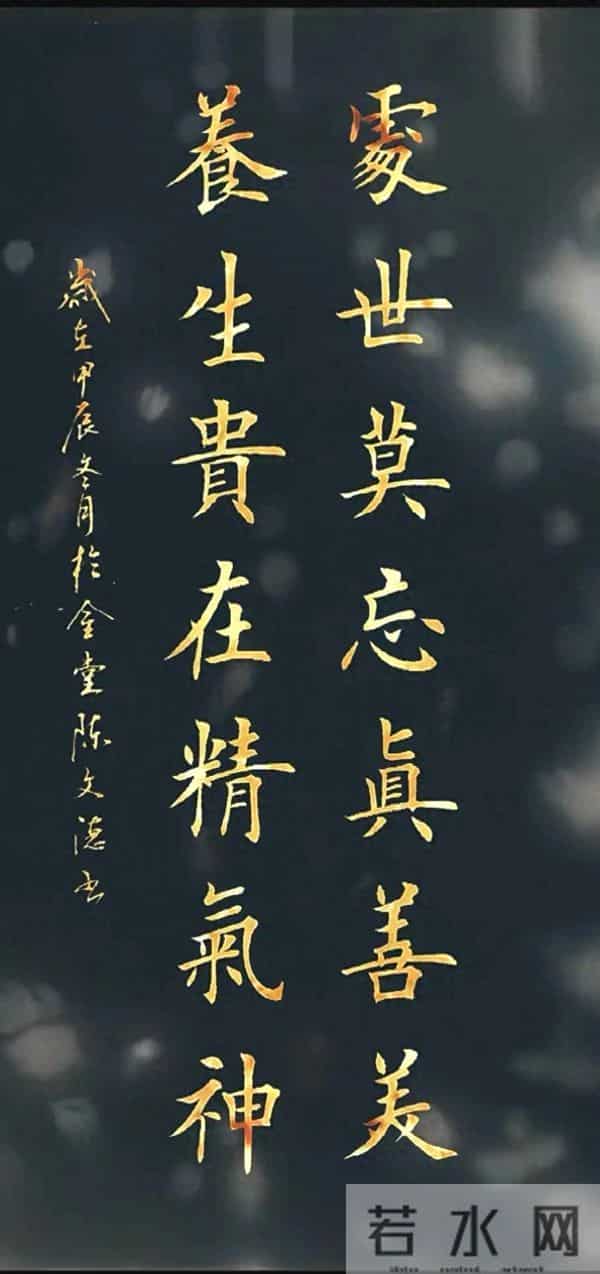 處世莫忘眞善美
養生貴在精氣神
歲在甲辰冬月於金堂陈文德书
若水网